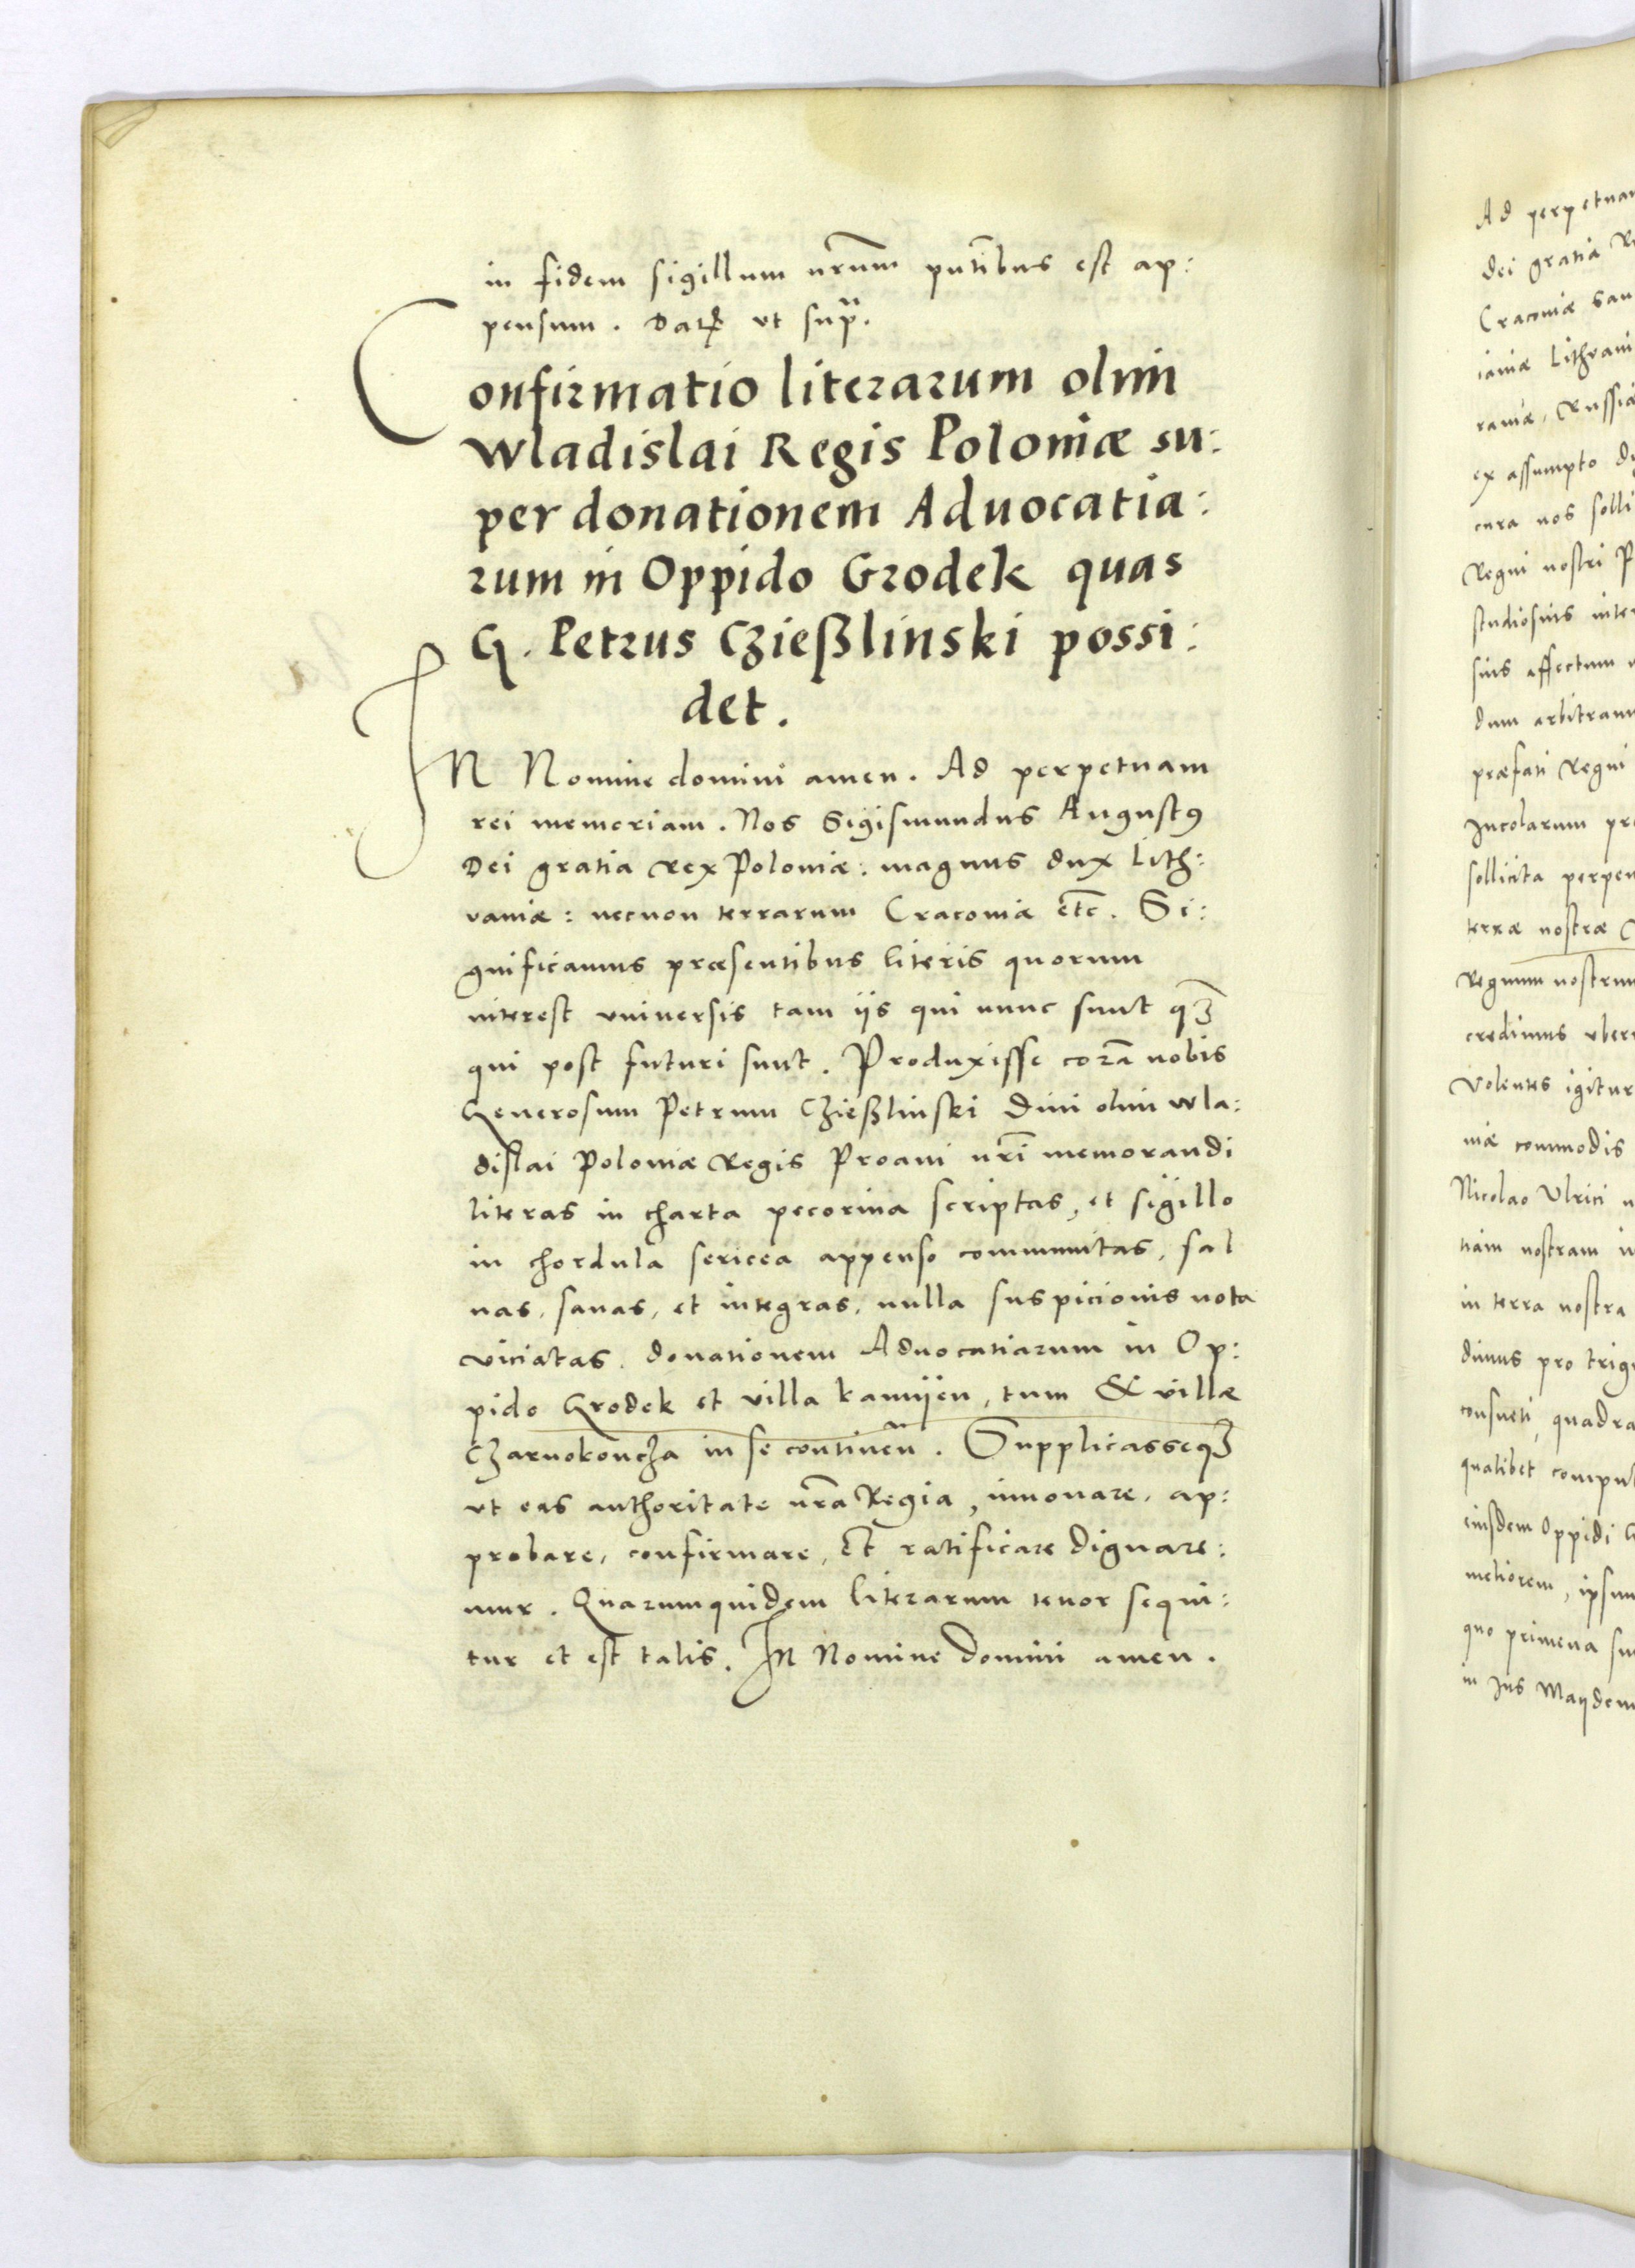 in fidem sigillum nr̃um pñtibus est ap:
pensum. Datꝭ vt supª.
Confirmatio literarum olim
Wladislai Regis Poloniæ su:
per donationem Aduocatia:
rum in Oppido Grodek quas
G. Petrus Czießlinski possi:
det.
IN Nomine domini amen. Ad perpetuam
rei memoriam. Nos Sigismundus Augustꝯ
Dei gratia Rex Poloniæ: magnus dux Lith:
vaniæ: necnon terrarum Cracoviæ etc̃. Si:
gnificamus præsentibus literis quorum
interest vniversis tam iis qui nunc sunt qꝫ
qui post futuri sunt. Produxisse corã nobis
Generosum Petrum Czießlinski Divi olim Wla:
dislai Poloniæ Regis Proavi nrĩ memorandi
literas in charta pecorina scriptas, et sigillo
in chordula sericea appenso communitas, sal
vas, sanas, et integras, nulla suspicionis nota
viciatas. donationem Aduocatiarum in Op:
pido Grodek et villa kamijen, tum & villæ
Czarnokoncza in se contineñ. Supplicasseqꝫ
vt eas authoritate nrã Regia, innovare, ap:
probare, confirmare, Et ratificare dignare:
mur. Quarumquidem literarum tenor sequi:
tur et est talis. In Nomine Domini amen.
Ad
Dei gratia
Cracoviæ
ex assumpto
cura nos
Regni nostri
studiosius
suis affectum
dum
præfati Regni
Incolarum
sollicita
terræ nostræ
Regnum
credimus
Volentes igitur
niæ commodis
Nicolao Ulrici
tiam nostram
in terra nostra
dimus pro
consueti, quadra
qualibet
eiusdem Oppidi
meliorem,
quo primeva
in Ius Maijdem